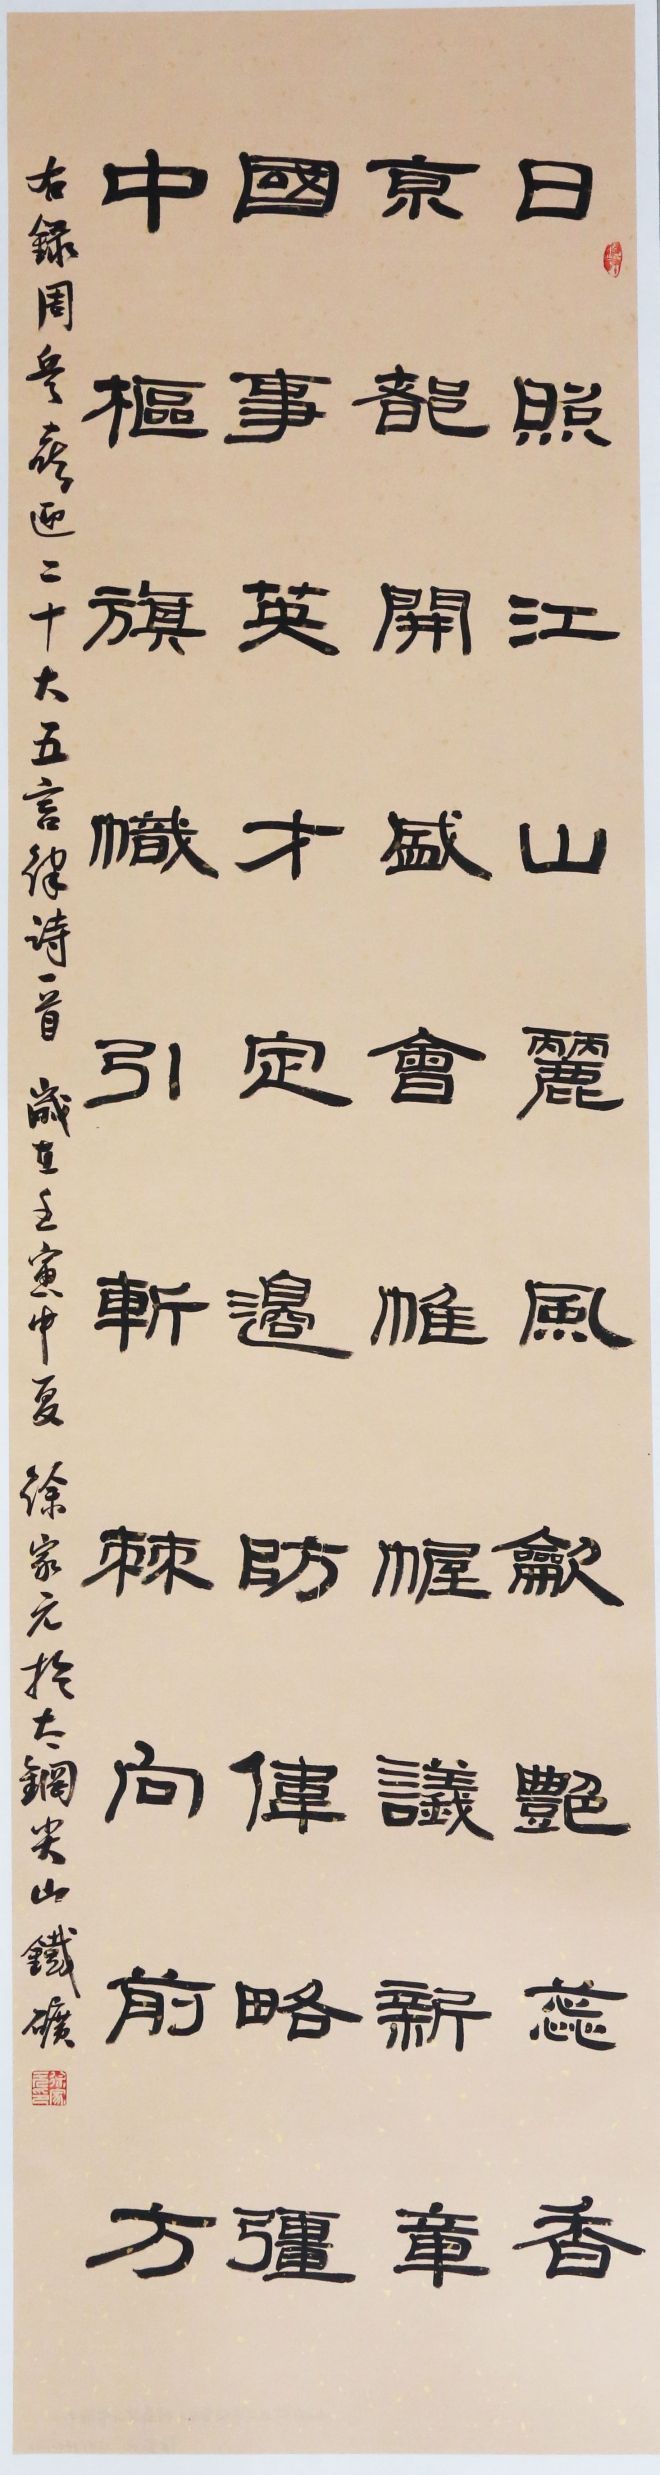 日照江山麗風歙艷蕊香
京都開盛會帷幄議新章
國事英才定邊防偉略彊
中樞旗幟引斬棘向前方
右録周兵喜迎二十大五言律诗一首 歲在壬寅中夏 徐家元於太鋼尖山鐵礦